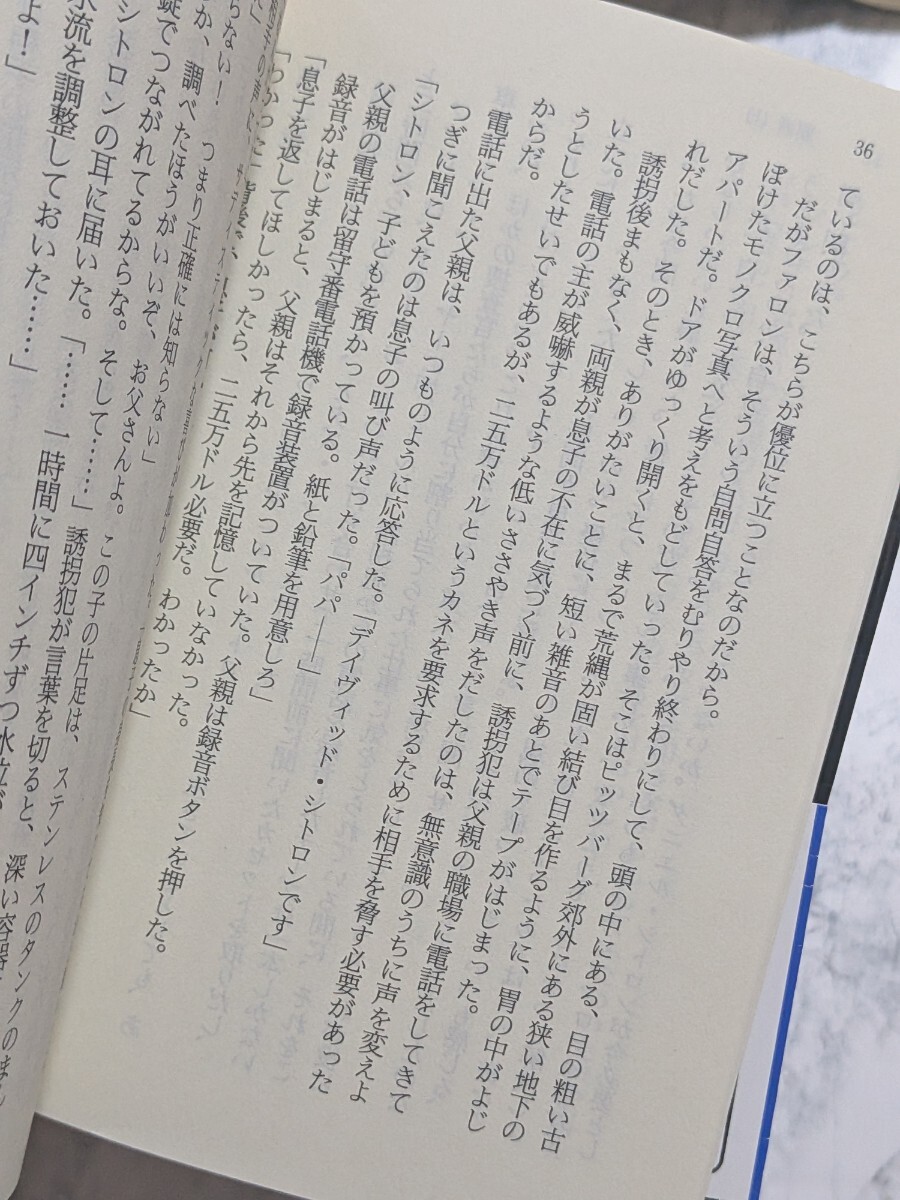 36
ているのは、こちらが優位に立つことなのだから。
だがファロンは、そういう自問自答をむりやり終わりにして、頭の中にある、目の粗い古
ぼけたモノクロ写真へと考えをもどしていった。そこはピッツバーグ郊外にある狭い地下の
アパートだ。ドアがゆっくり開くと、まるで荒縄が固い結び目を作るように、胃の中がよじ
れだした。そのとき、ありがたいことに、短い雑音のあとでテープがはじまった。
誘拐後まもなく、両親が息子の不在に気づく前に、誘拐犯は父親の職場に電話をしてきて
いた。電話の主が威嚇するような低いささやき声をだしたのは、無意識のうちに声を変えよ
うとしたせいでもあるが、二五万ドルというカネを要求するために相手を脅す必要があった
からだ。
電話に出た父親は、いつものように応答した。「デイヴィッド・シトロンです」
つぎに聞こえたのは息子の叫び声だった。「パパ――」
「シトロン、子どもを預かっている。紙と鉛筆を用意しろ」
父親の電話は留守番電話機で録音装置がついていた。父親は録音ボタンを押した。
録音がはじまると、父親はそれから先を記憶していなかった。
「息子を返してほしかったら、二五万ドル必要だ。わかったか」
「わかった」
らない！　つまり正確には知らない」
か、調べたほうがいいぞ、お父さんよ。この子の片足は、ステンレスのタンクの
錠でつながれてるからな。そして……」誘拐犯が言葉を切ると、深い容器
シトロンの耳に届いた。「……一時間に四インチずつ水位が
水流を調整しておいた……」
よ！」